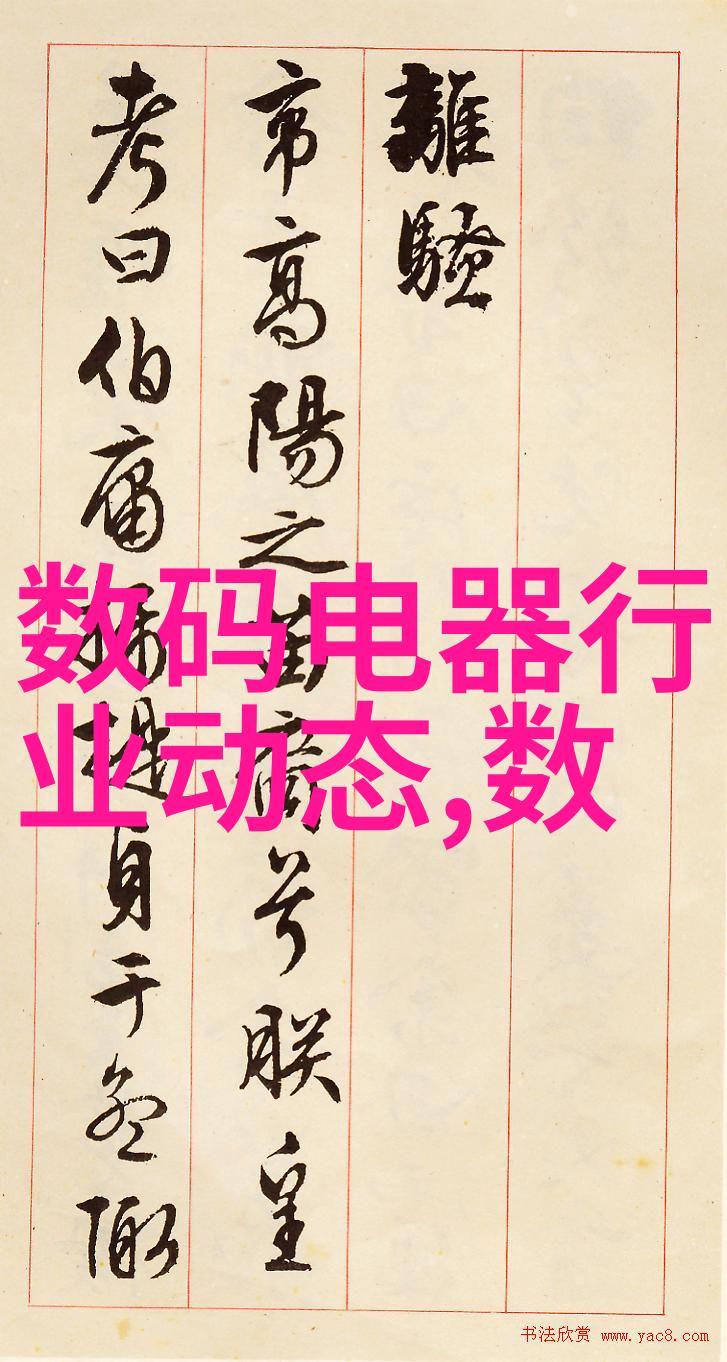 離騷
帝高陽之苗裔兮朕皇
考曰伯庸攝提貞于孟陬
数码电器行
业动态,数
书法欣赏 www.yac8.com